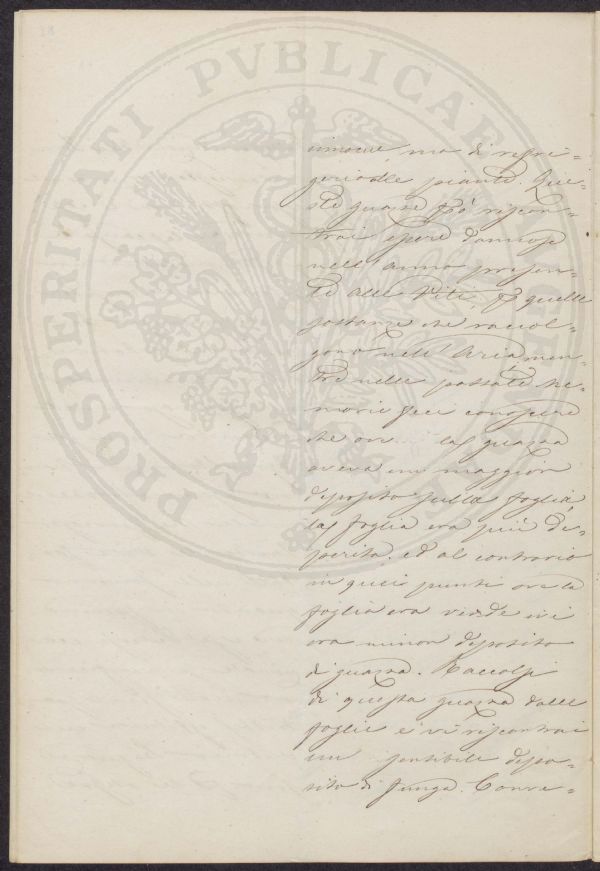 PROSPERITATI PVBLICAE AVGENDAE
18
nuocere, ma di refri-
gerio alle piante. Que-
ste guazze però riscon-
trai essere dannose
nell'anno presen-
te alle Viti, p quelle
sostanze che raccol-
gono nell'Aria men-
tre nelle passate me-
morie feci conoscere
che ove la guazza
aveva un maggior
deposito sulla foglia
la foglia era più de-
perita, ed al contrario
in quei punti ove la
foglia era verde ivi
era minor deposito
di guazza. Raccolsi
di questa guazza dalle
foglie e vi riscontrai
un sensibile depo-
sito di funga. Conve-